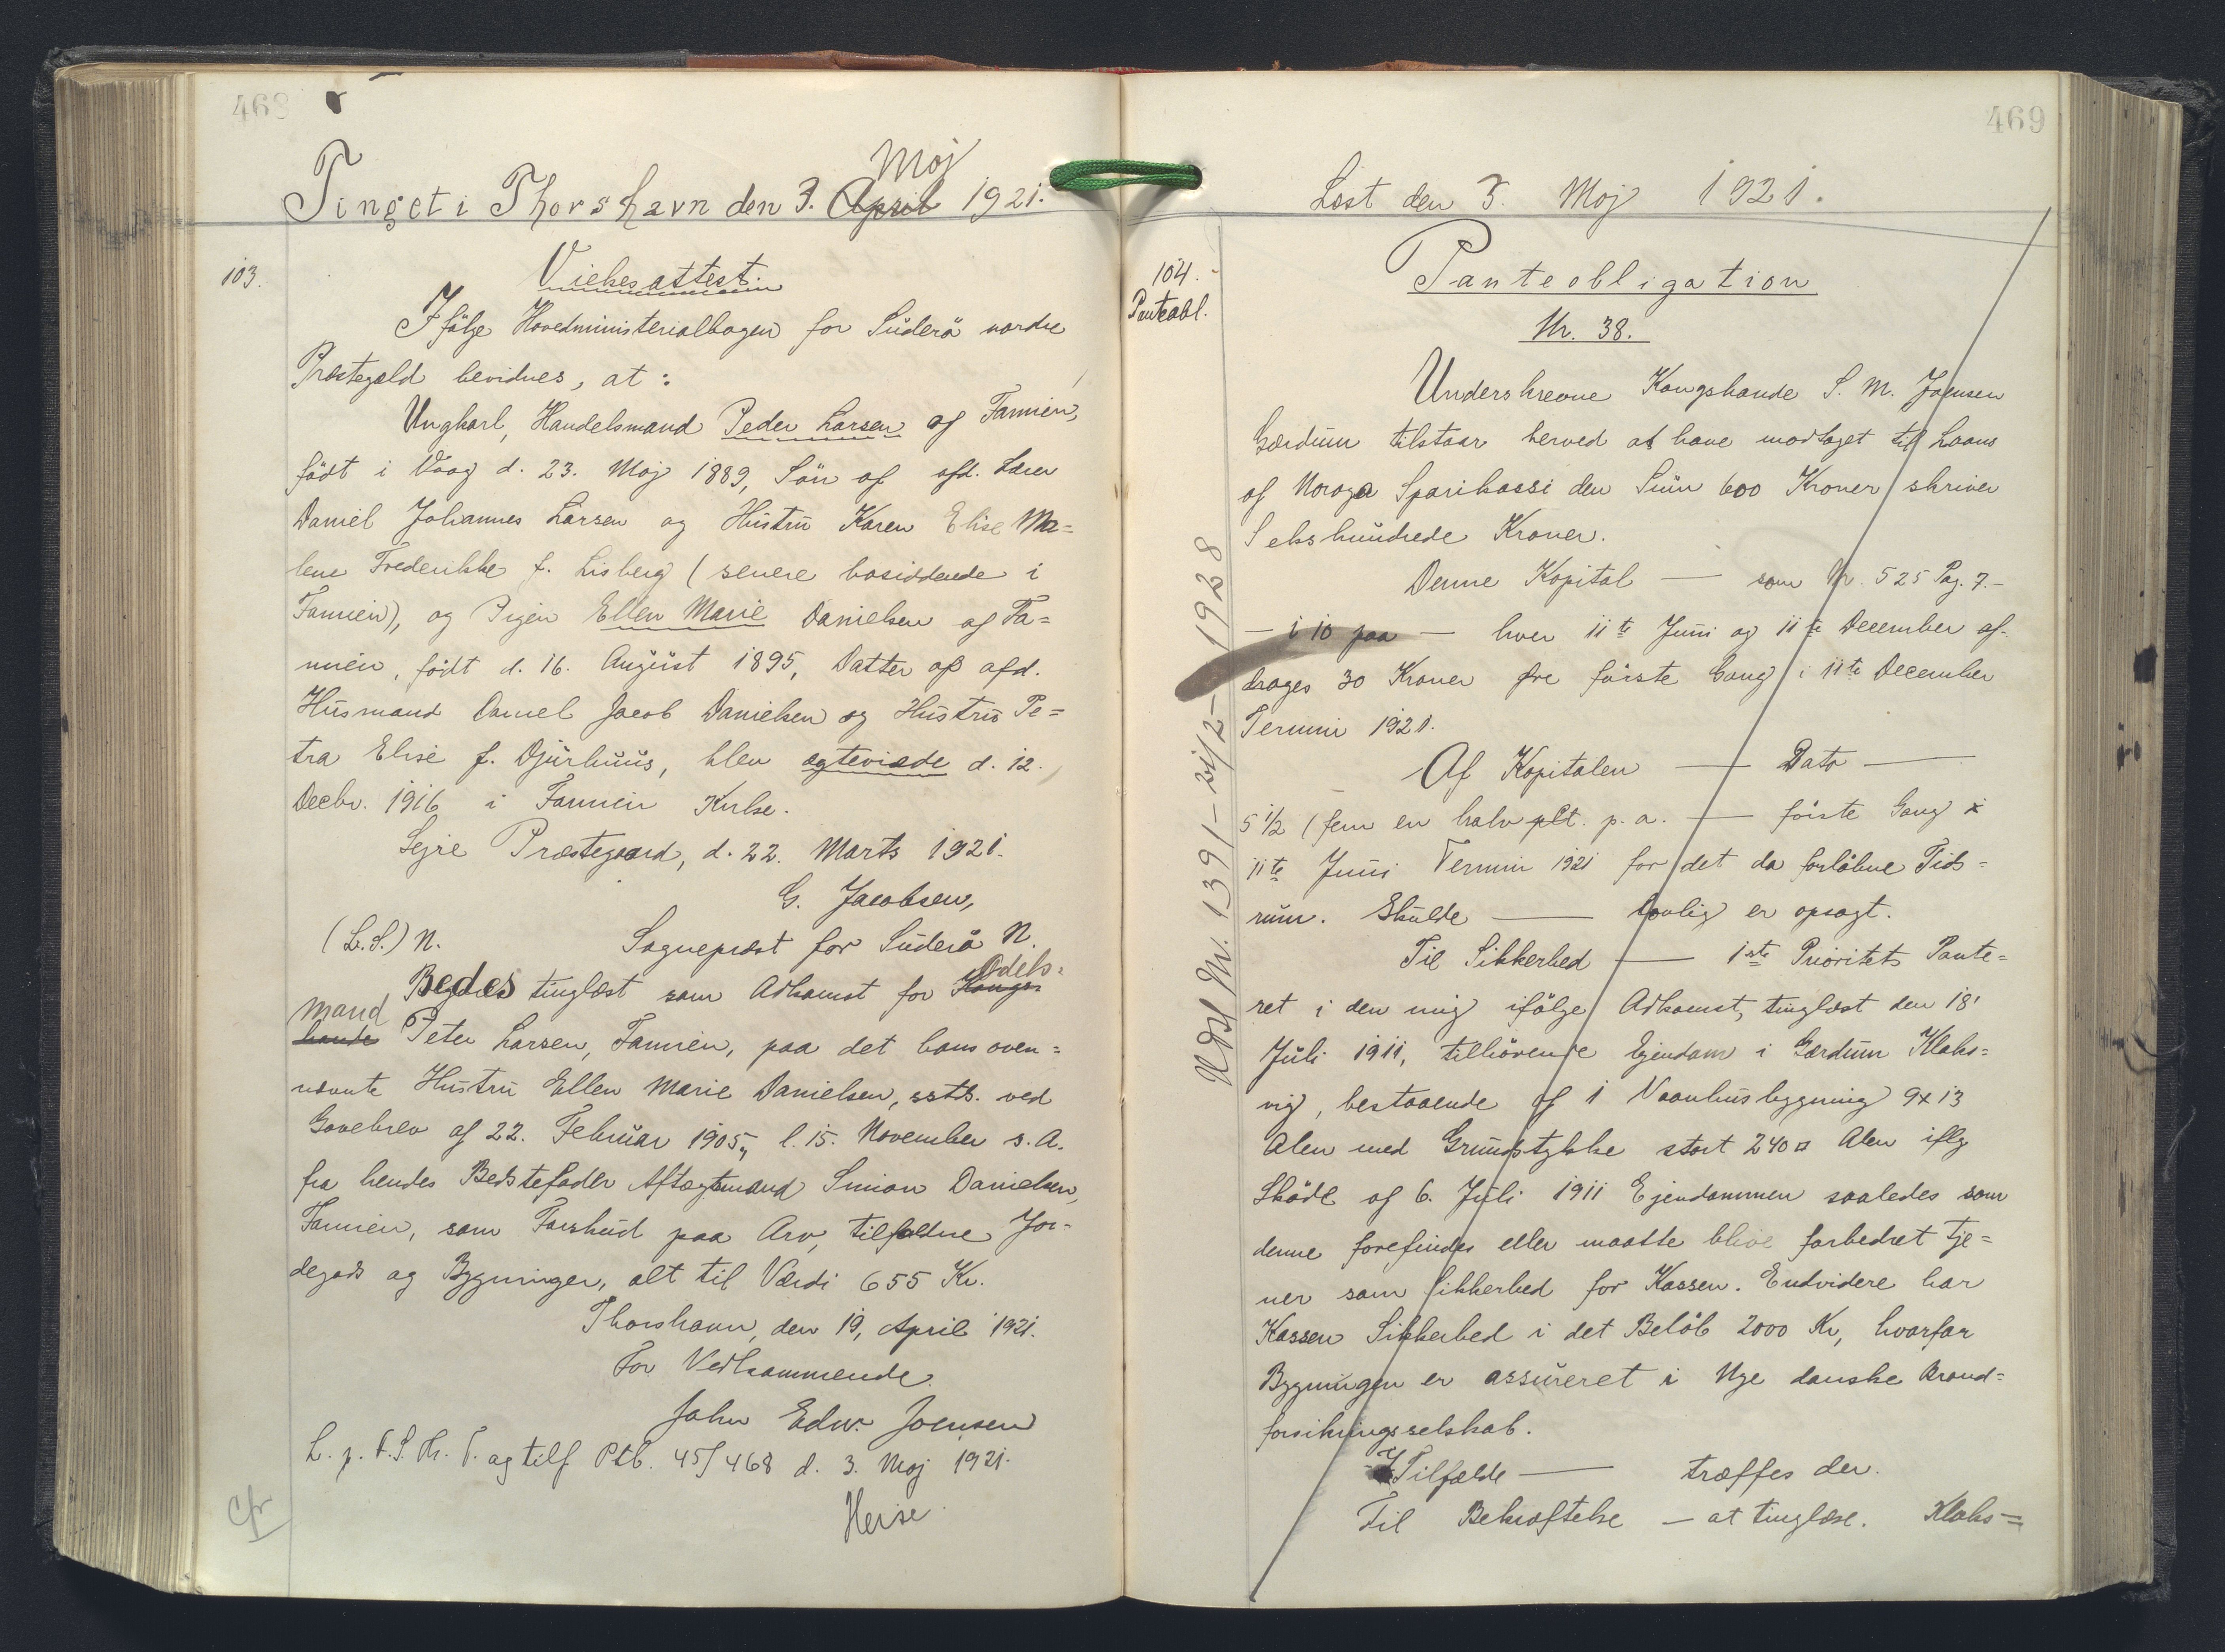 468
Maj
Tinget i Thorshavn den 3. April 1921.
103.
Vielsesattest.
Ifölge Hovedministerialbogen for Süderö nordre
Præstegæld bevidnes, at:
Ungkarl, Handelsmand Peder Larsen af Famien,
födt i Vaag d. 23. Maj 1889, Sön af afd. Lærer
Daniel Johannes Larsen og Hüstrü Karen Elise Ma=
lene Frederikke f. Lisberg (senere bosiddende i
Famien), og Pigen Ellen Marie Danielsen af Fa=
mien, födt d. 16. Augüst 1895, Datter af afd.
Hüsmand Daniel Jacob Danielsen og Hüstrü Pe=
tra Elise f. Djürhüüs, blev ægteviede d. 12.
Decbr. 1916 i Famien Kirke.
Sejre Præstegaard, d. 22. Marts 1921.
G. Jacobsen,
(L.S.) N. Sognepræst for Süderö N.
Odels=
Bedes tinglæst som Adkomst for Kongs=
mand
bonde Peter Larsen, Famien, paa det hans oven=
nævnte Hüstrü Ellen Marie Danielsen, ssts. ved
Gavebrev af 22. Febrüar 1905, l. 15. November s. A.
fra hendes Bedstefader Aftægtsmand Simon Danielsen,
Famien, som Forskud paa Arv, tilfaldne Jor=
degods og Bygninger, alt til Værdi 655 Kr.
Thorshavn, den 19, April 1921.
For Vedkommende
John Edw. Joensen
L. p. F.S. Th. T. og tilf Ptb. 45/468 d. 3. Maj 1921.
Heise
cfr
469
Læst den 3. Maj 1921.
104.
Panteobl.
Panteobligation
Nr. 38.
Underskrevne Kongsbonde S. M. Joensen
Gærdum tilstaar herved at have modtaget til Laans
af Noroya Sparikassi den Süm 600 Kroner skriver
Sekshündrede Kroner.
Denne Kapital — som Nr. 525 Pag. 7. –
– i 10 paa – hver 11te Jüni og 11te December af-
drages 30 Kroner første Gang i 11te December
Termin 1921.
Af Kapitalen — Dato —
5 1/2 (fem en halv pCt. p. a. — förste Gang i
11te Jüni Termin 1921 for det da forlöbne Tids=
rüm. Skülde — lovlig er opsagt.
Til Sikkerhed — 1ste Prioritets Pante=
ret i den mig ifölge Adkomst, tinglæst den 18'
Jüli 1911, tilhörende Ejendom i Gærdüm Klaks=
vig, bestaaende af 1 Vaanhüsbygning 9x13
Alen med Gründstykke stort 240 □ Alen iflg
Sködе af 6. Jüli 1911 Ejendommen saaledes som
denne forefindes eller maatte blive forbedret tje=
ner som Sikkerhed for Kassen. Endvidere har
Kassen Sikkerhed i det Belöb 2000 Kr, hvorfor
Bygningen er assüreret i Nye danske Brand=
forsikringsselskab.
I Tilfælde — træffes der.
Til Bekræftelse — at tinglæse. Klaks=
Udsl Nr. 1391 – 21/12 – 1928